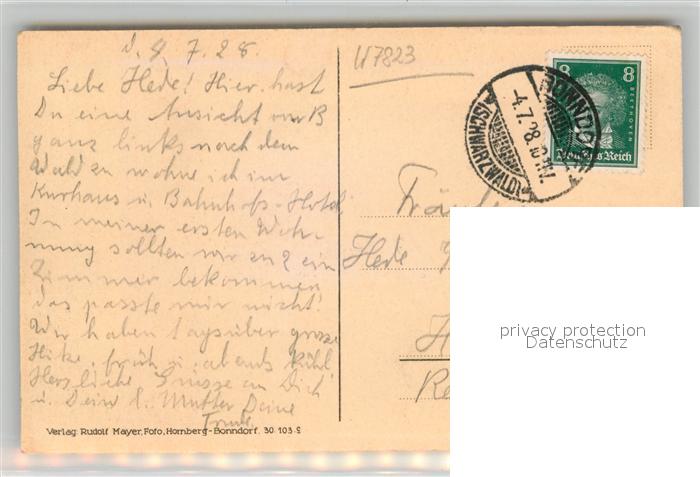 d. 4. 7. 28.
Liebe Hede! Hier hast
Du eine Ansicht von B
ganz links nach dem
Wald zu wohne ich im
Kurhaus u. Bahnhofs-Hotel,
In meiner ersten Woh-
nung sollten wir zu 2 ein
Zimmer bekommen
das passte mir nicht!
Wir haben tagsüber grosse
Hitze, früh u. abends kühl
Herzliche Grüsse an Dich
u. Deine l. Mutter Deine
Verlag: Rudolf Mayer, Foto, Hornberg-Bonndorf. 30 103 S
U7823
BONNDORF
-4.7.28.
(SCHWARZWALD)
8 8
BEETHOVEN
Deutsches Reich
Fräu
Hede
H
Re
privacy protection
Datenschutz